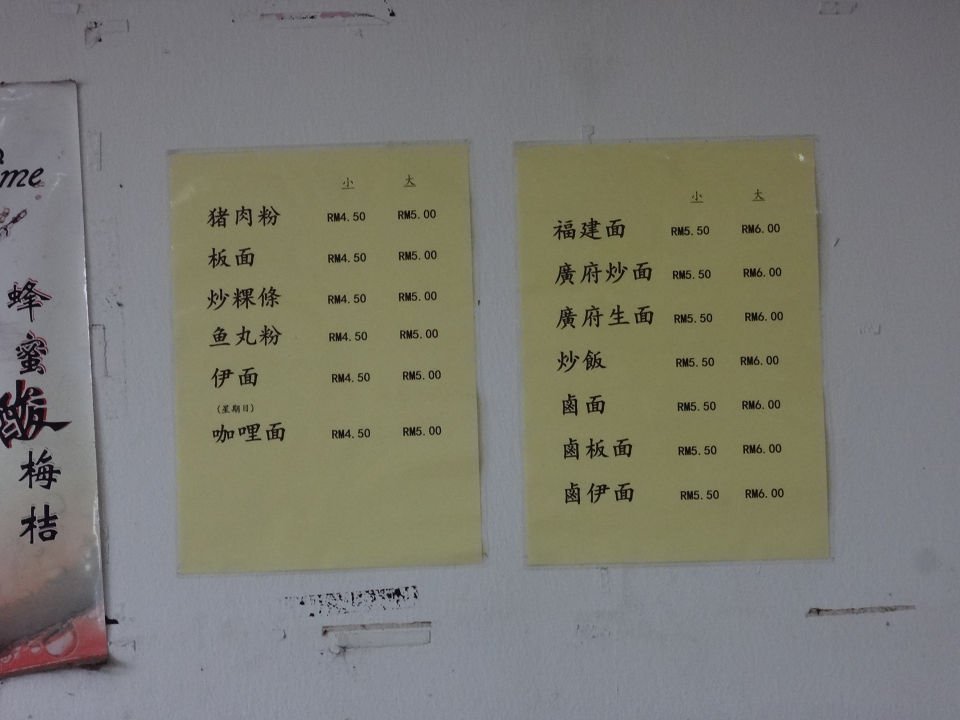 me
蜂
蜜
酸
梅
桔
小 大
猪肉粉 RM4.50 RM5.00
板面 RM4.50 RM5.00
炒粿條 RM4.50 RM5.00
鱼丸粉 RM4.50 RM5.00
伊面 RM4.50 RM5.00
(星期日)
咖哩面 RM4.50 RM5.00
小 大
福建面 RM5.50 RM6.00
廣府炒面 RM5.50 RM6.00
廣府生面 RM5.50 RM6.00
炒飯 RM5.50 RM6.00
鹵面 RM5.50 RM6.00
鹵板面 RM5.50 RM6.00
鹵伊面 RM5.50 RM6.00